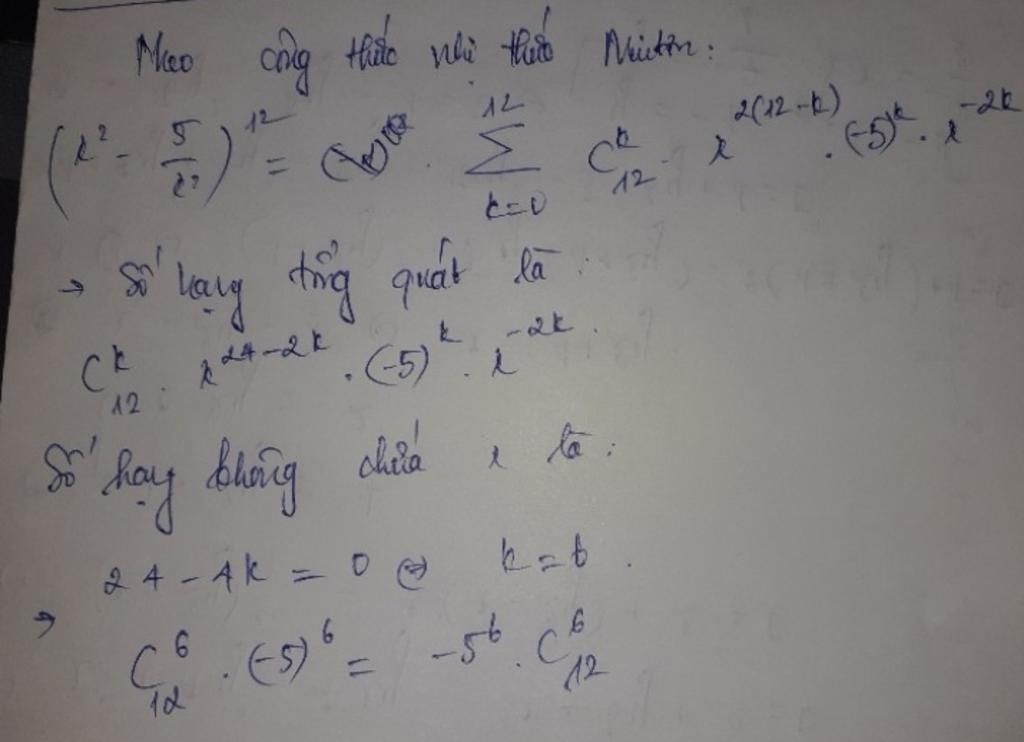 Theo công thức nhị thức Niuton:
(x² - 5/x²)^12 = Σ_{k=0}^{12} C_{12}^{k} . x^{2(12-k)} . (-5)^k . x^{-2k}
→ Số hạng tổng quát là:
C_{12}^{k} . x^{24-2k} . (-5)^k . x^{-2k}.
Số hạng không chứa x là:
24 - 4k = 0 ⇔ k = 6.
→ C_{12}^{6} . (-5)^6 = -5^6 . C_{12}^{6}